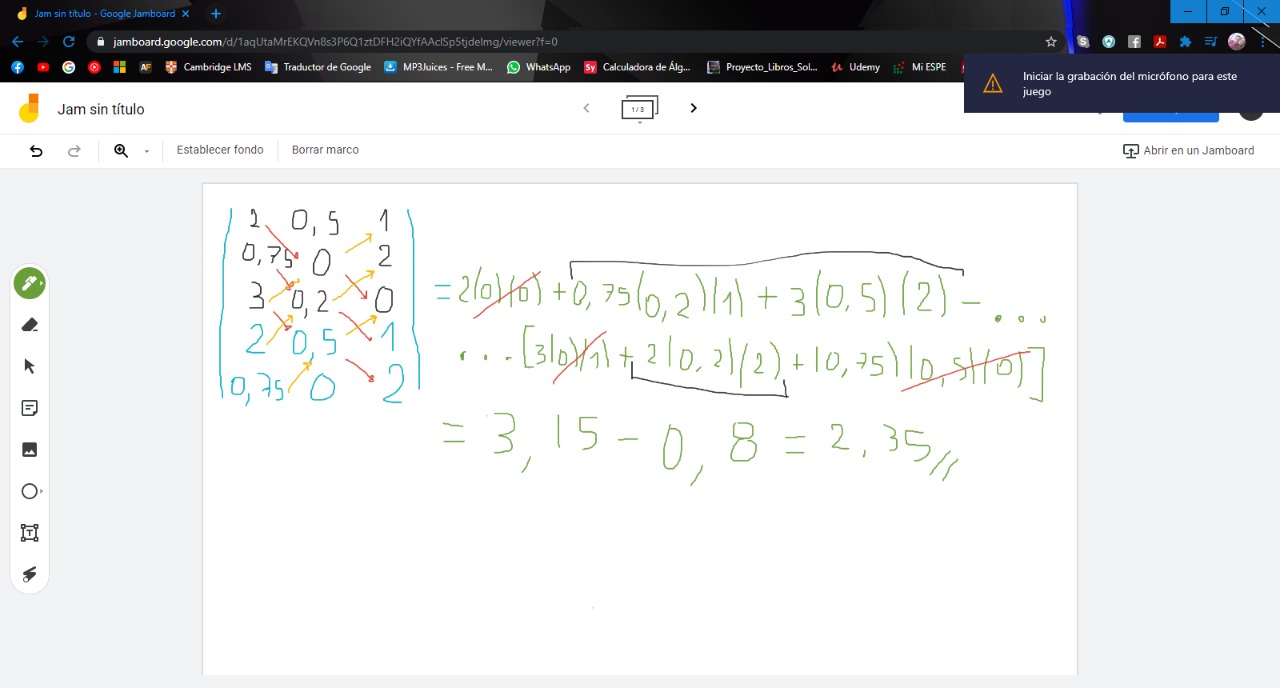 Jam sin título - Google Jamboard
jamboard.google.com/d/1aqUtaMrEKQVn8s3P6Q1ztDFH2iQYfAAclSp5tjdelmg/viewer?f=0
Cambridge LMS Traductor de Google MP3Juices - Free M... WhatsApp Sy Calculadora de Álg... Proyecto_Libros_Sol... Udemy Mi ESPE
Iniciar la grabación del micrófono para este
juego
Jam sin título
1 / 3
Establecer fondo Borrar marco
Abrir en un Jamboard
2 0,5 1
0,75 0 2
3 0,2 0
2 0,5 1
0,75 0 2
= 2(0)(0) + 0,75(0,2)(1) + 3(0,5)(2) - ...
... [3(0)(1) + 2(0,2)(2) + (0,75)(0,5)(0)]
= 3,15 - 0,8 = 2,35//